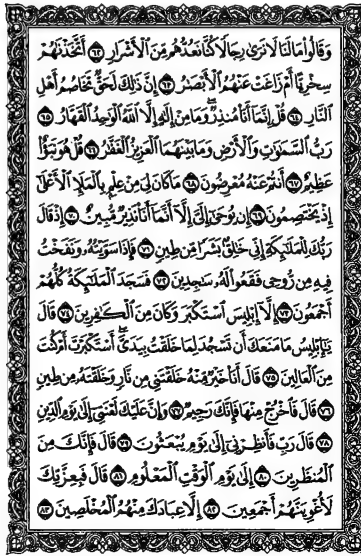 وَقَالُوا۟ مَا لَنَا لَا نَرَىٰ رِجَالًا كُنَّا نَعُدُّهُم مِّنَ ٱلْأَشْرَارِ ﴿٦٢﴾ أَتَّخَذْنَٰهُمْ
سِخْرِيًّا أَمْ زَاغَتْ عَنْهُمُ ٱلْأَبْصَٰرُ ﴿٦٣﴾ إِنَّ ذَٰلِكَ لَحَقٌّ تَخَاصُمُ أَهْلِ
ٱلنَّارِ ﴿٦٤﴾ قُلْ إِنَّمَآ أَنَا۠ مُنذِرٌ ۖ وَمَا مِنْ إِلَٰهٍ إِلَّا ٱللَّهُ ٱلْوَٰحِدُ ٱلْقَهَّارُ ﴿٦٥﴾
رَبُّ ٱلسَّمَٰوَٰتِ وَٱلْأَرْضِ وَمَا بَيْنَهُمَا ٱلْعَزِيزُ ٱلْغَفَّٰرُ ﴿٦٦﴾ قُلْ هُوَ نَبَؤٌا۟
عَظِيمٌ ﴿٦٧﴾ أَنتُمْ عَنْهُ مُعْرِضُونَ ﴿٦٨﴾ مَا كَانَ لِىَ مِنْ عِلْمٍۭ بِٱلْمَلَإِ ٱلْأَعْلَىٰٓ
إِذْ يَخْتَصِمُونَ ﴿٦٩﴾ إِن يُوحَىٰٓ إِلَىَّ إِلَّآ أَنَّمَآ أَنَا۠ نَذِيرٌ مُّبِينٌ ﴿٧٠﴾ إِذْ قَالَ
رَبُّكَ لِلْمَلَٰٓئِكَةِ إِنِّى خَٰلِقٌۢ بَشَرًا مِّن طِينٍ ﴿٧١﴾ فَإِذَا سَوَّيْتُهُۥ وَنَفَخْتُ
فِيهِ مِن رُّوحِى فَقَعُوا۟ لَهُۥ سَٰجِدِينَ ﴿٧٢﴾ فَسَجَدَ ٱلْمَلَٰٓئِكَةُ كُلُّهُمْ
أَجْمَعُونَ ﴿٧٣﴾ إِلَّآ إِبْلِيسَ ٱسْتَكْبَرَ وَكَانَ مِنَ ٱلْكَٰفِرِينَ ﴿٧٤﴾ قَالَ
يَٰٓإِبْلِيسُ مَا مَنَعَكَ أَن تَسْجُدَ لِمَا خَلَقْتُ بِيَدَىَّ ۖ أَسْتَكْبَرْتَ أَمْ كُنتَ
مِنَ ٱلْعَالِينَ ﴿٧٥﴾ قَالَ أَنَا۠ خَيْرٌ مِّنْهُ ۖ خَلَقْتَنِى مِن نَّارٍ وَخَلَقْتَهُۥ مِن طِينٍ
﴿٧٦﴾ قَالَ فَٱخْرُجْ مِنْهَا فَإِنَّكَ رَجِيمٌ ﴿٧٧﴾ وَإِنَّ عَلَيْكَ لَعْنَتِىٓ إِلَىٰ يَوْمِ ٱلدِّينِ
﴿٧٨﴾ قَالَ رَبِّ فَأَنظِرْنِىٓ إِلَىٰ يَوْمِ يُبْعَثُونَ ﴿٧٩﴾ قَالَ فَإِنَّكَ مِنَ
ٱلْمُنظَرِينَ ﴿٨٠﴾ إِلَىٰ يَوْمِ ٱلْوَقْتِ ٱلْمَعْلُومِ ﴿٨١﴾ قَالَ فَبِعِزَّتِكَ
لَأُغْوِيَنَّهُمْ أَجْمَعِينَ ﴿٨٢﴾ إِلَّا عِبَادَكَ مِنْهُمُ ٱلْمُخْلَصِينَ ﴿٨٣﴾